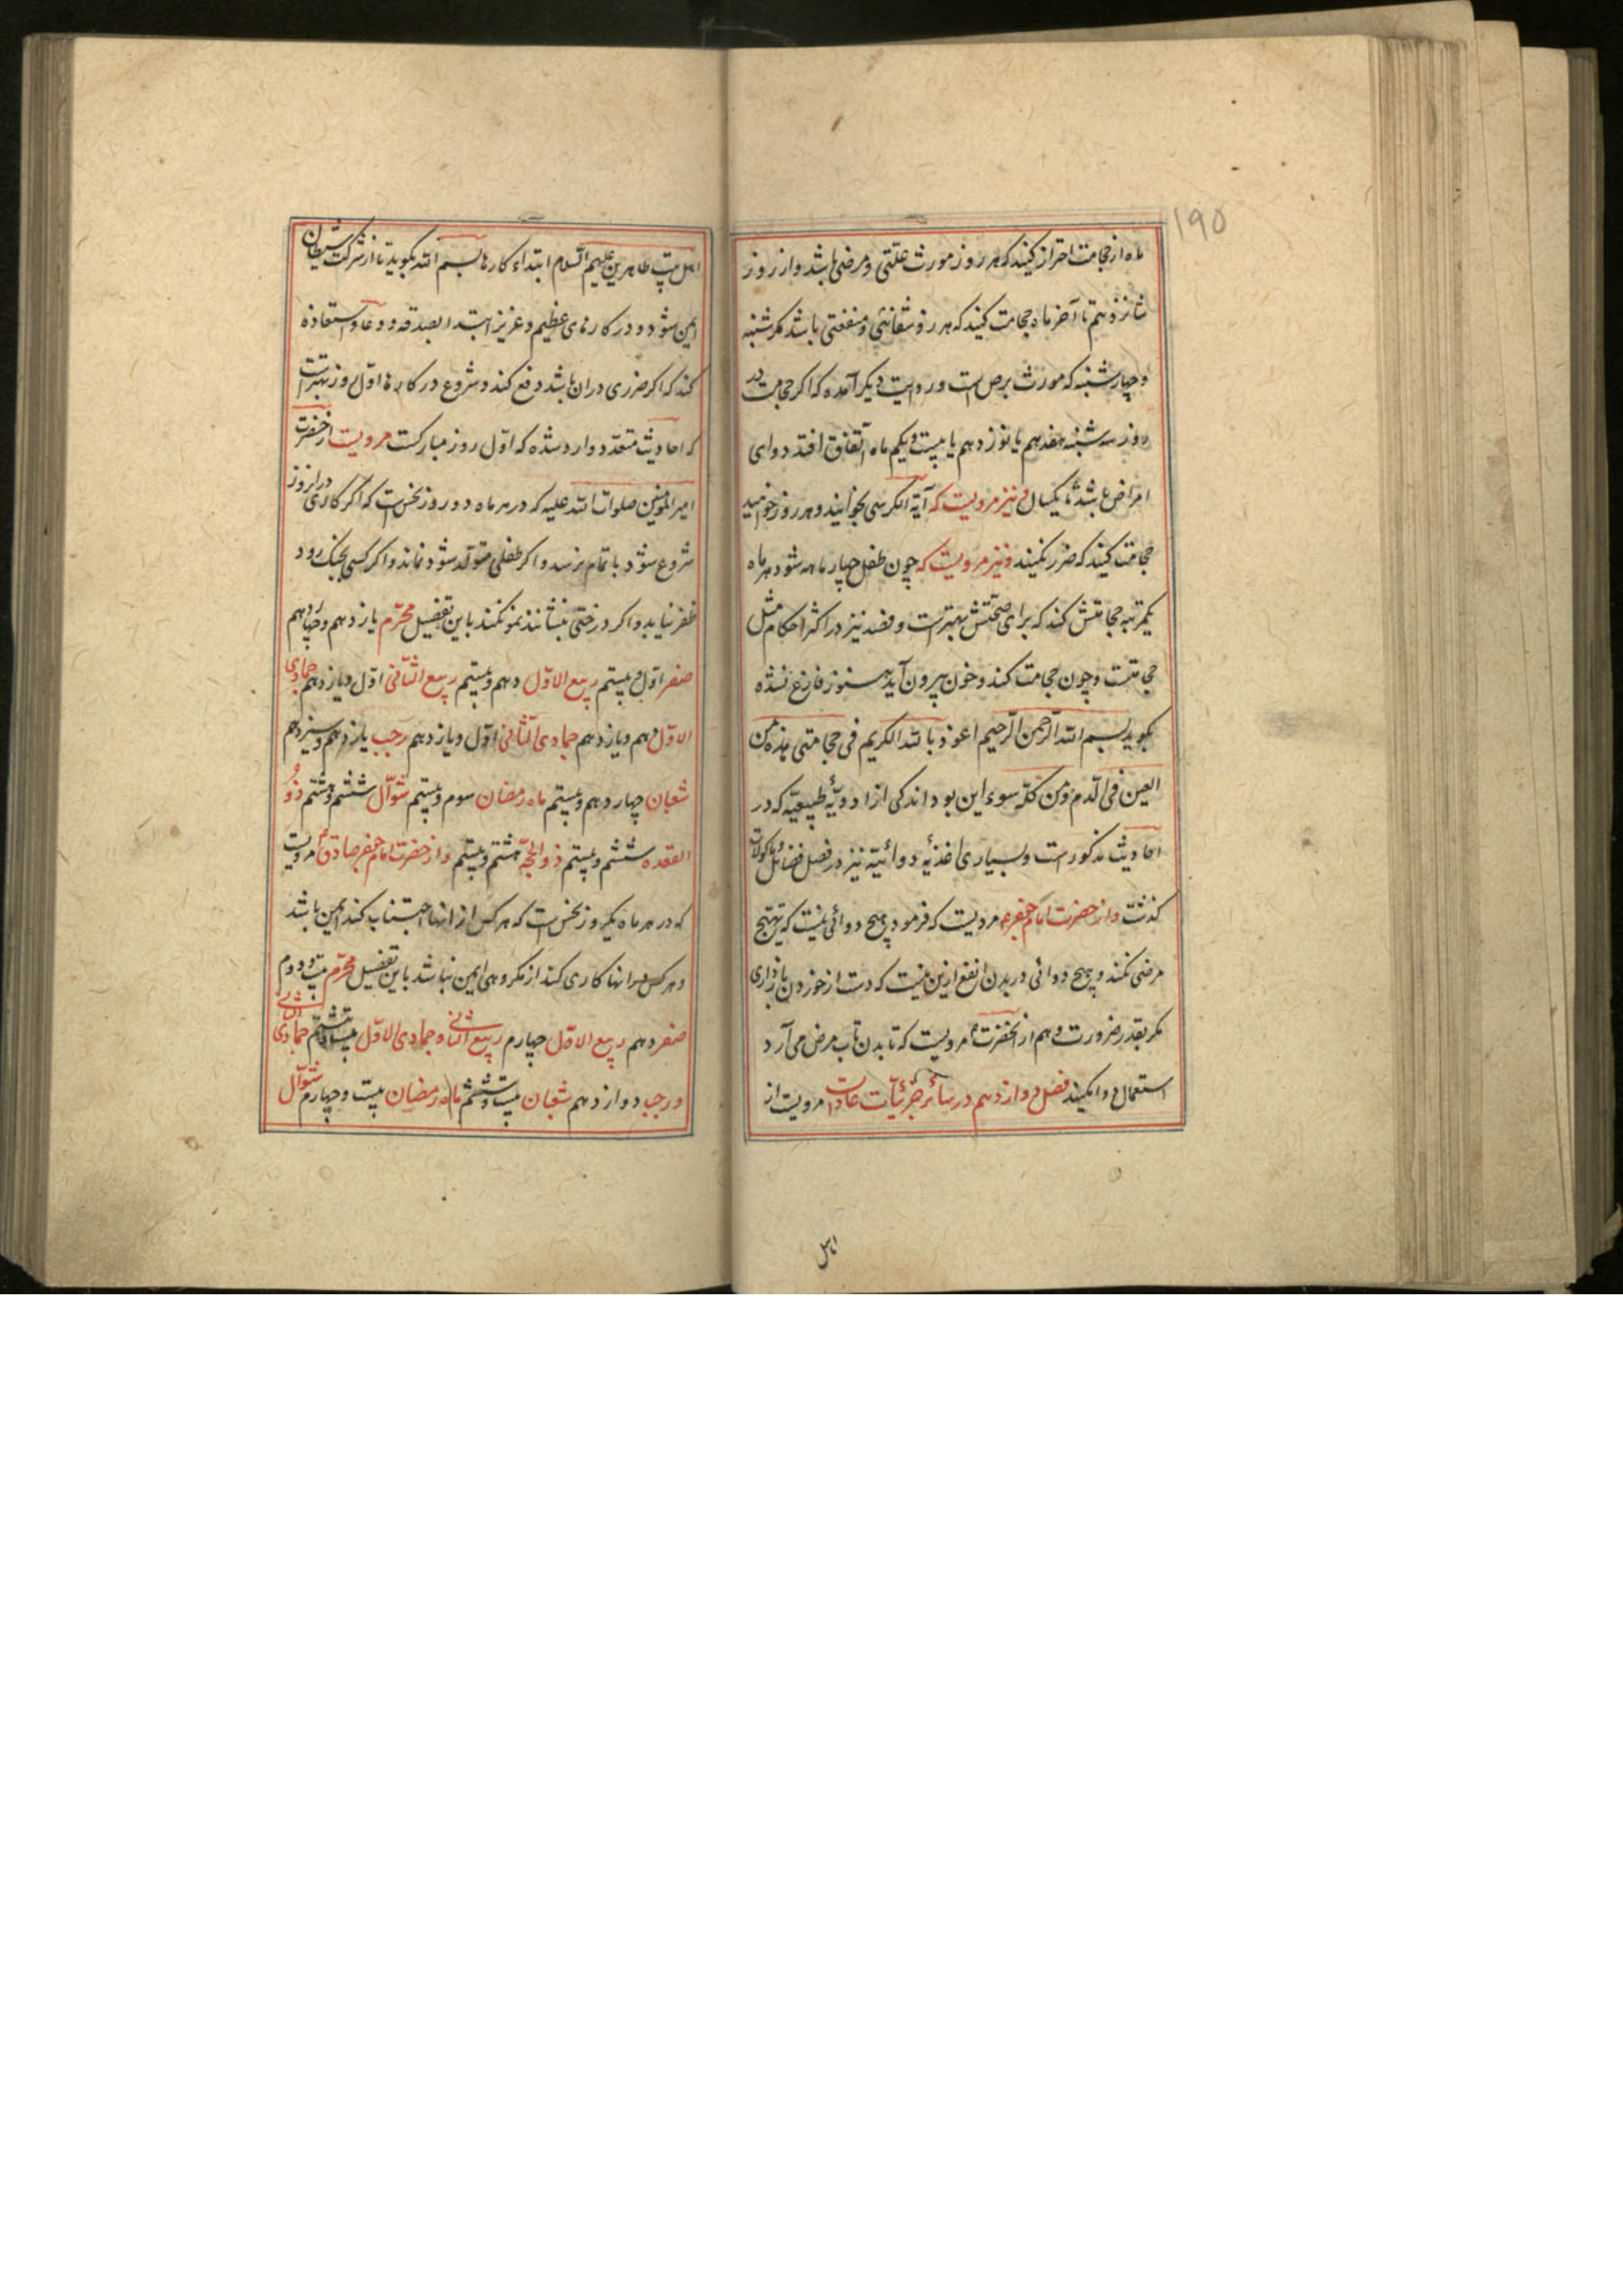 ۱۹۵
ماه از حجامت احتراز کنید که هر روز مورث علتی و مرضی باشد و از روز
شانزدهم تا آخر ماه حجامت کنید که هر روز شفائی و منفعتی باشد مکر شنبه
و چهارشنبه که مورث برص است و روایت دیکر آمده که اکر حجامت در
روز سه شنبه هفدهم یا نوزدهم یا بیست و یکم ماه اتفاق افتد دوای
امراض باشد تا یکسال و نیز مرویست که آیة الکرسی بخوانید و هر روز خواهید
حجامت کنید که ضرر نکنید و نیز مرویست که چون طفل چهار ماهه شود هر ماه
یکمرتبه حجامتش کند که برای صحتش بهتر است و فصد نیز در اکثر احکام مثل
حجامتست و چون حجامت کند و خون بیرون آید هنوز فارغ نشده
بکوید بسم الله الرحمن الرحیم اعوذ بالله الکریم فی حجامتی هذه من
العین فی الدم و من کل سوء این بود اندکی از ادویهٔ طبیعیه که در
احادیث مذکور است و بسیاری اغذیهٔ دوائیه نیز در فصل فضائل ماکولات
کذشت و از حضرت امام جعفر مرویست که فرمود هیچ دوائی نیست که تهییج
مرضی نکند و هیچ دوائی در بدن انفع ازین نیست که دست از خوردن بازداری
مکر بقدر ضرورت و هم از آنحضرت مرویست که تا بدن تاب مرض می آرد
استعمال دوا مکنید فصل دوازدهم در سائر جزئیات عادات مرویست از
اهل
اهل بیت طاهرین علیهم السلام ابتداء کارها بسم الله بکوید تا از شرکت شیطان
ایمن شود و در کارهای عظیم و عزیز ابتدا بصدقه و دعا و استعاذه
کند که اکر ضرری در ان باشد دفع کند و شروع در کارها اول روز بهتر است
که احادیث متعدد وارد شده که اول روز مبارکست مرویست از حضرت
امیر المؤمنین صلوات الله علیه که در هر ماه دو روز نحس است که اکر کاری در انروز
شروع شود باتمام نرسد و اکر طفلی متولد شود نماند و اکر کسی بجنک رود
ظفر نیابد و اکر درختی بنشانند نمو نکند باین تفضیل محرم یازدهم و چهاردهم
صفر اول و بیستم ربیع الاول دهم و بیستم ربیع الثانی اول و یازدهم جمادی
الاول دهم و یازدهم جمادی الثانی اول و یازدهم رجب یازدهم و سیزدهم
شعبان چهاردهم و بیستم ماه رمضان سوم و بیستم شوال ششم و هشتم ذو
القعده ششم و بیستم ذو الحجه هشتم و بیستم و از حضرت امام جعفر صادق مرویست
که در هر ماه یکروز نحس است که هر کس از انها اجتناب کند ایمن باشد
و هر کس در انها کاری کند از مکروهی ایمن نباشد باین تفضیل محرم بیست و دوم
صفر دهم ربیع الاول چهارم ربیع الثانی و جمادی الاول بیست و هشتم جمادی الثانی
و رجب دوازدهم شعبان بیست و ششم ماه رمضان بیست و چهارم شوال